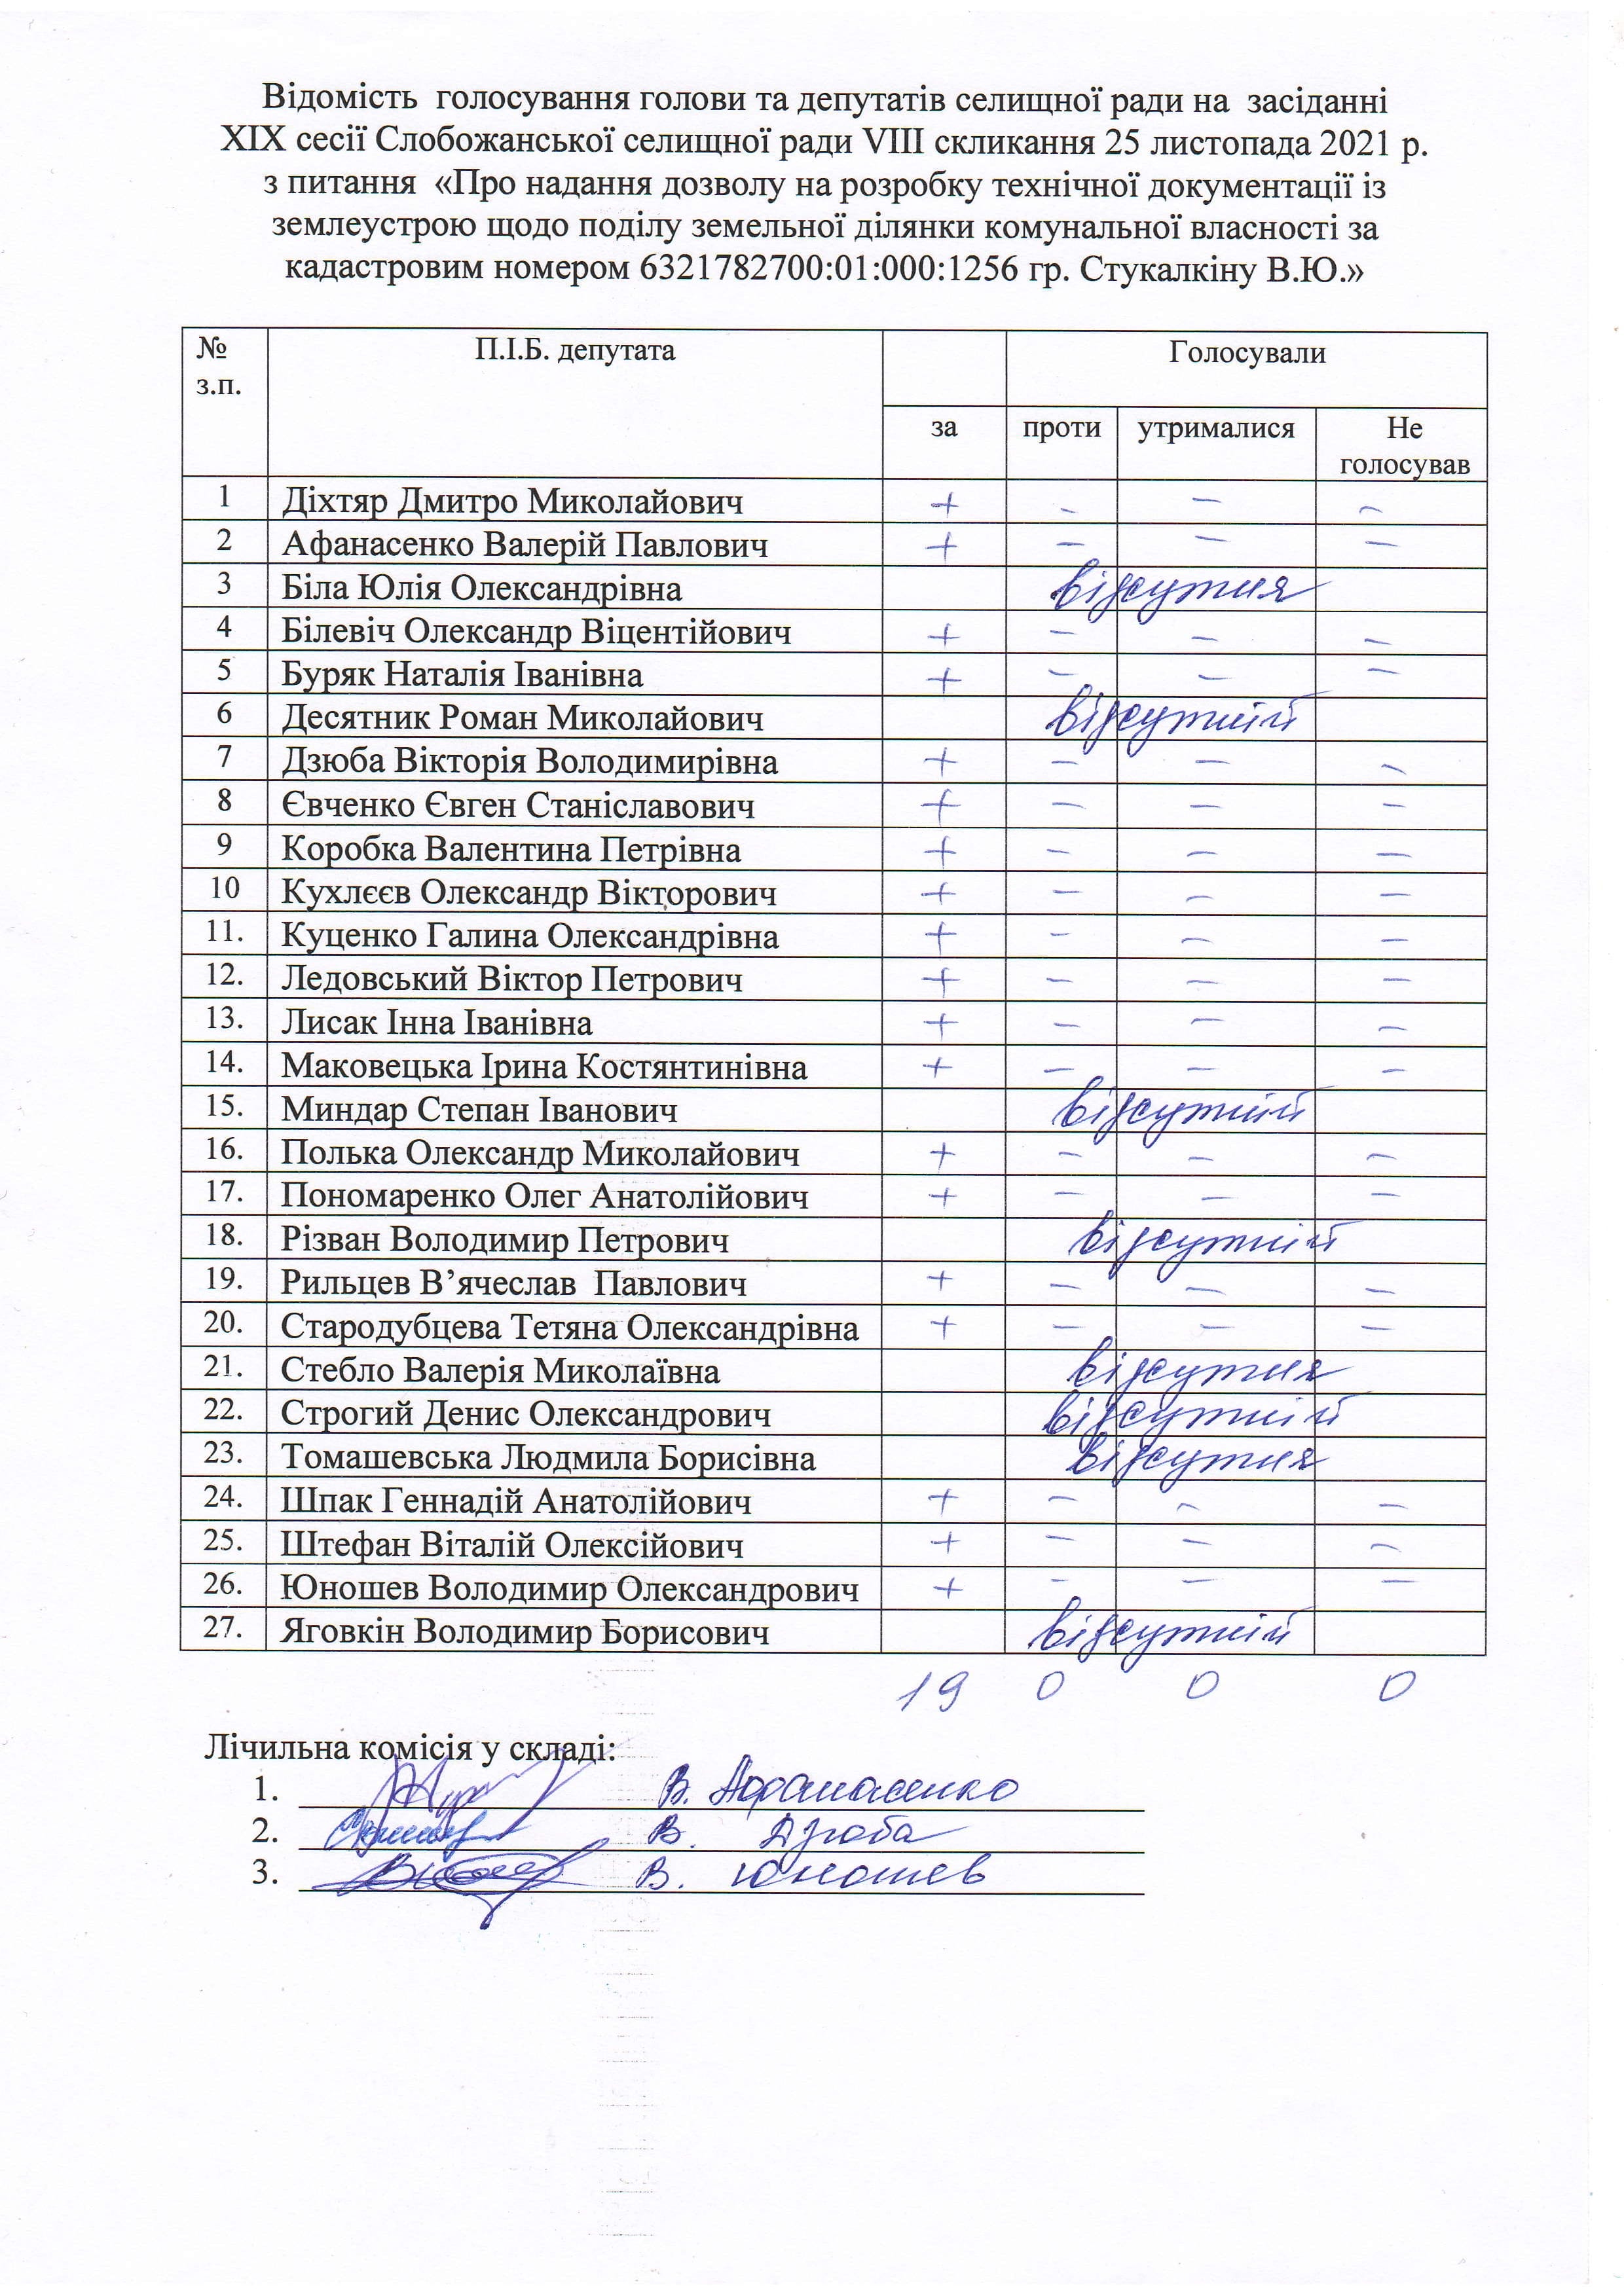 Відомість голосування голови та депутатів селищної ради на засіданні
XIX сесії Слобожанської селищної ради VIII скликання 25 листопада 2021 р.
з питання «Про надання дозволу на розробку технічної документації із
землеустрою щодо поділу земельної ділянки комунальної власності за
кадастровим номером 6321782700:01:000:1256 гр. Стукалкіну В.Ю.»
№ з.п. П.І.Б. депутата Голосували
за проти утрималися Не голосував
1 Діхтяр Дмитро Миколайович + - - -
2 Афанасенко Валерій Павлович + - - -
3 Біла Юлія Олександрівна відсутня
4 Білевіч Олександр Віцентійович + - - -
5 Буряк Наталія Іванівна + - - -
6 Десятник Роман Миколайович відсутній
7 Дзюба Вікторія Володимирівна + - - -
8 Євченко Євген Станіславович + - - -
9 Коробка Валентина Петрівна + - - -
10 Кухлєєв Олександр Вікторович + - - -
11. Куценко Галина Олександрівна + - - -
12. Ледовський Віктор Петрович + - - -
13. Лисак Інна Іванівна + - - -
14. Маковецька Ірина Костянтинівна + - - -
15. Миндар Степан Іванович відсутній
16. Полька Олександр Миколайович + - - -
17. Пономаренко Олег Анатолійович + - - -
18. Різван Володимир Петрович відсутній
19. Рильцев В’ячеслав Павлович + - - -
20. Стародубцева Тетяна Олександрівна + - - -
21. Стебло Валерія Миколаївна відсутня
22. Строгий Денис Олександрович відсутній
23. Томашевська Людмила Борисівна відсутня
24. Шпак Геннадій Анатолійович + - - -
25. Штефан Віталій Олексійович + - - -
26. Юношев Володимир Олександрович + - - -
27. Яговкін Володимир Борисович відсутній
19 0 0 0
Лічильна комісія у складі:
1. В. Афанасенко
2. В. Дзюба
3. В. Юношев